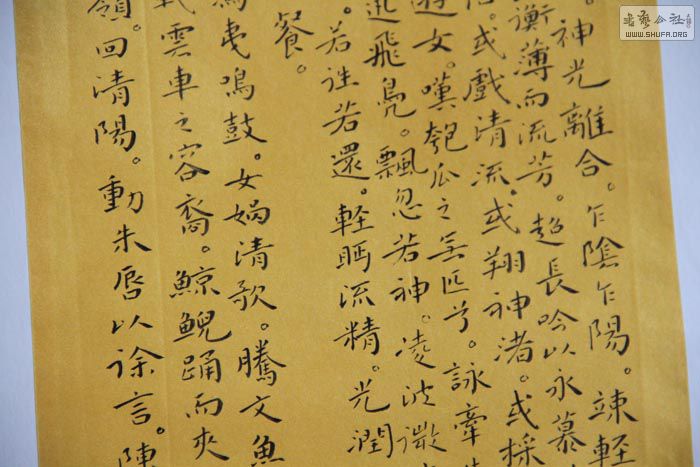 。神光離合。乍陰乍陽。竦軽
衡薄而流芳。超長吟以永慕
。或戲清流。或翔神渚。或採
遊女。嘆匏瓜之無匹兮。詠牽
迅飛鳧。飄忽若神。凌波微
。若往若還。轉眄流精。光潤
餐。
夷鳴鼓。女媧清歌。騰文魚
雲車之容裔。鯨鯢踊而夾
嶺。回清陽。動朱唇以徐言。陳
书艺公社
WWW.SHUFA.ORG